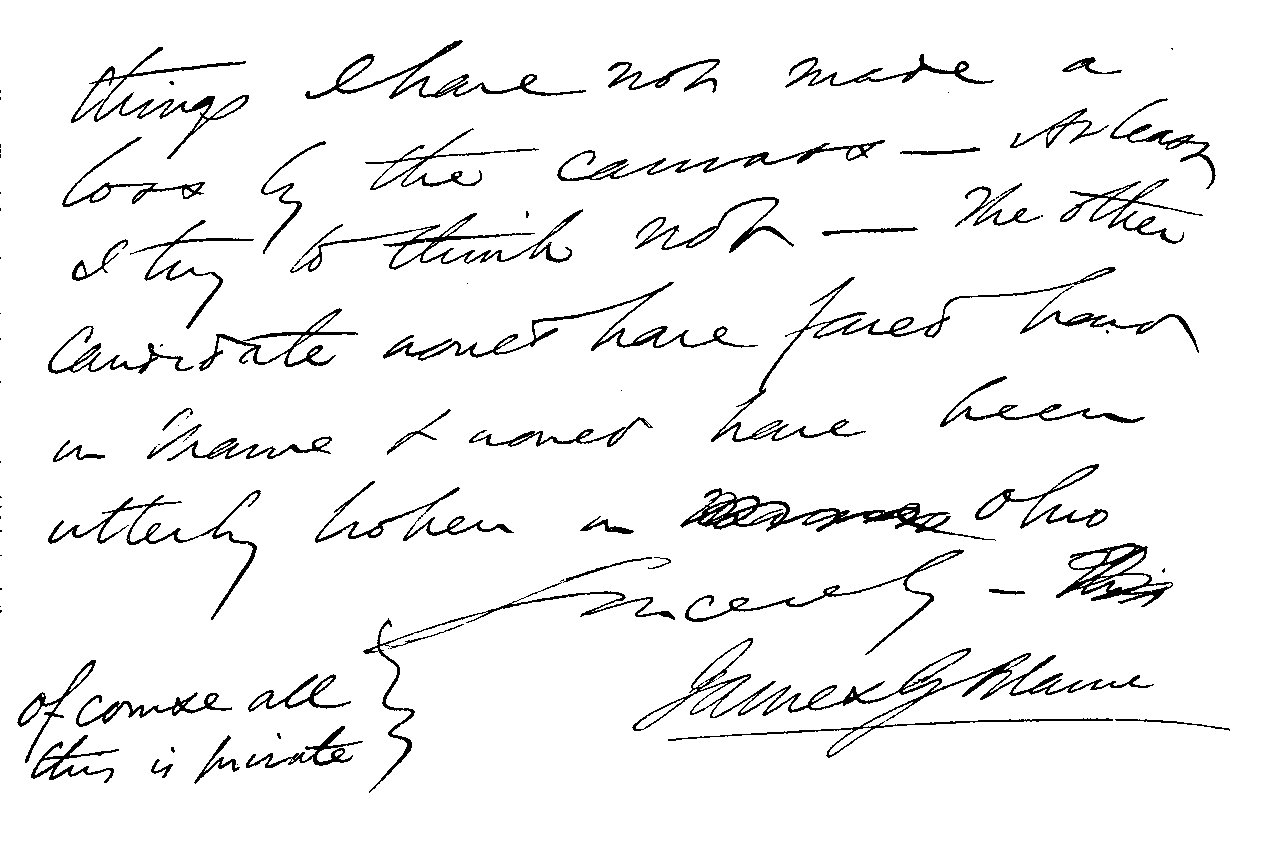 things I have not made a
loss by the canvass — At least
I try to think not — The other
Candidate would have fared hard
in Maine & would have been
utterly broken in Ohio
Sincerely — This
James G Blaine
of course all
this is private